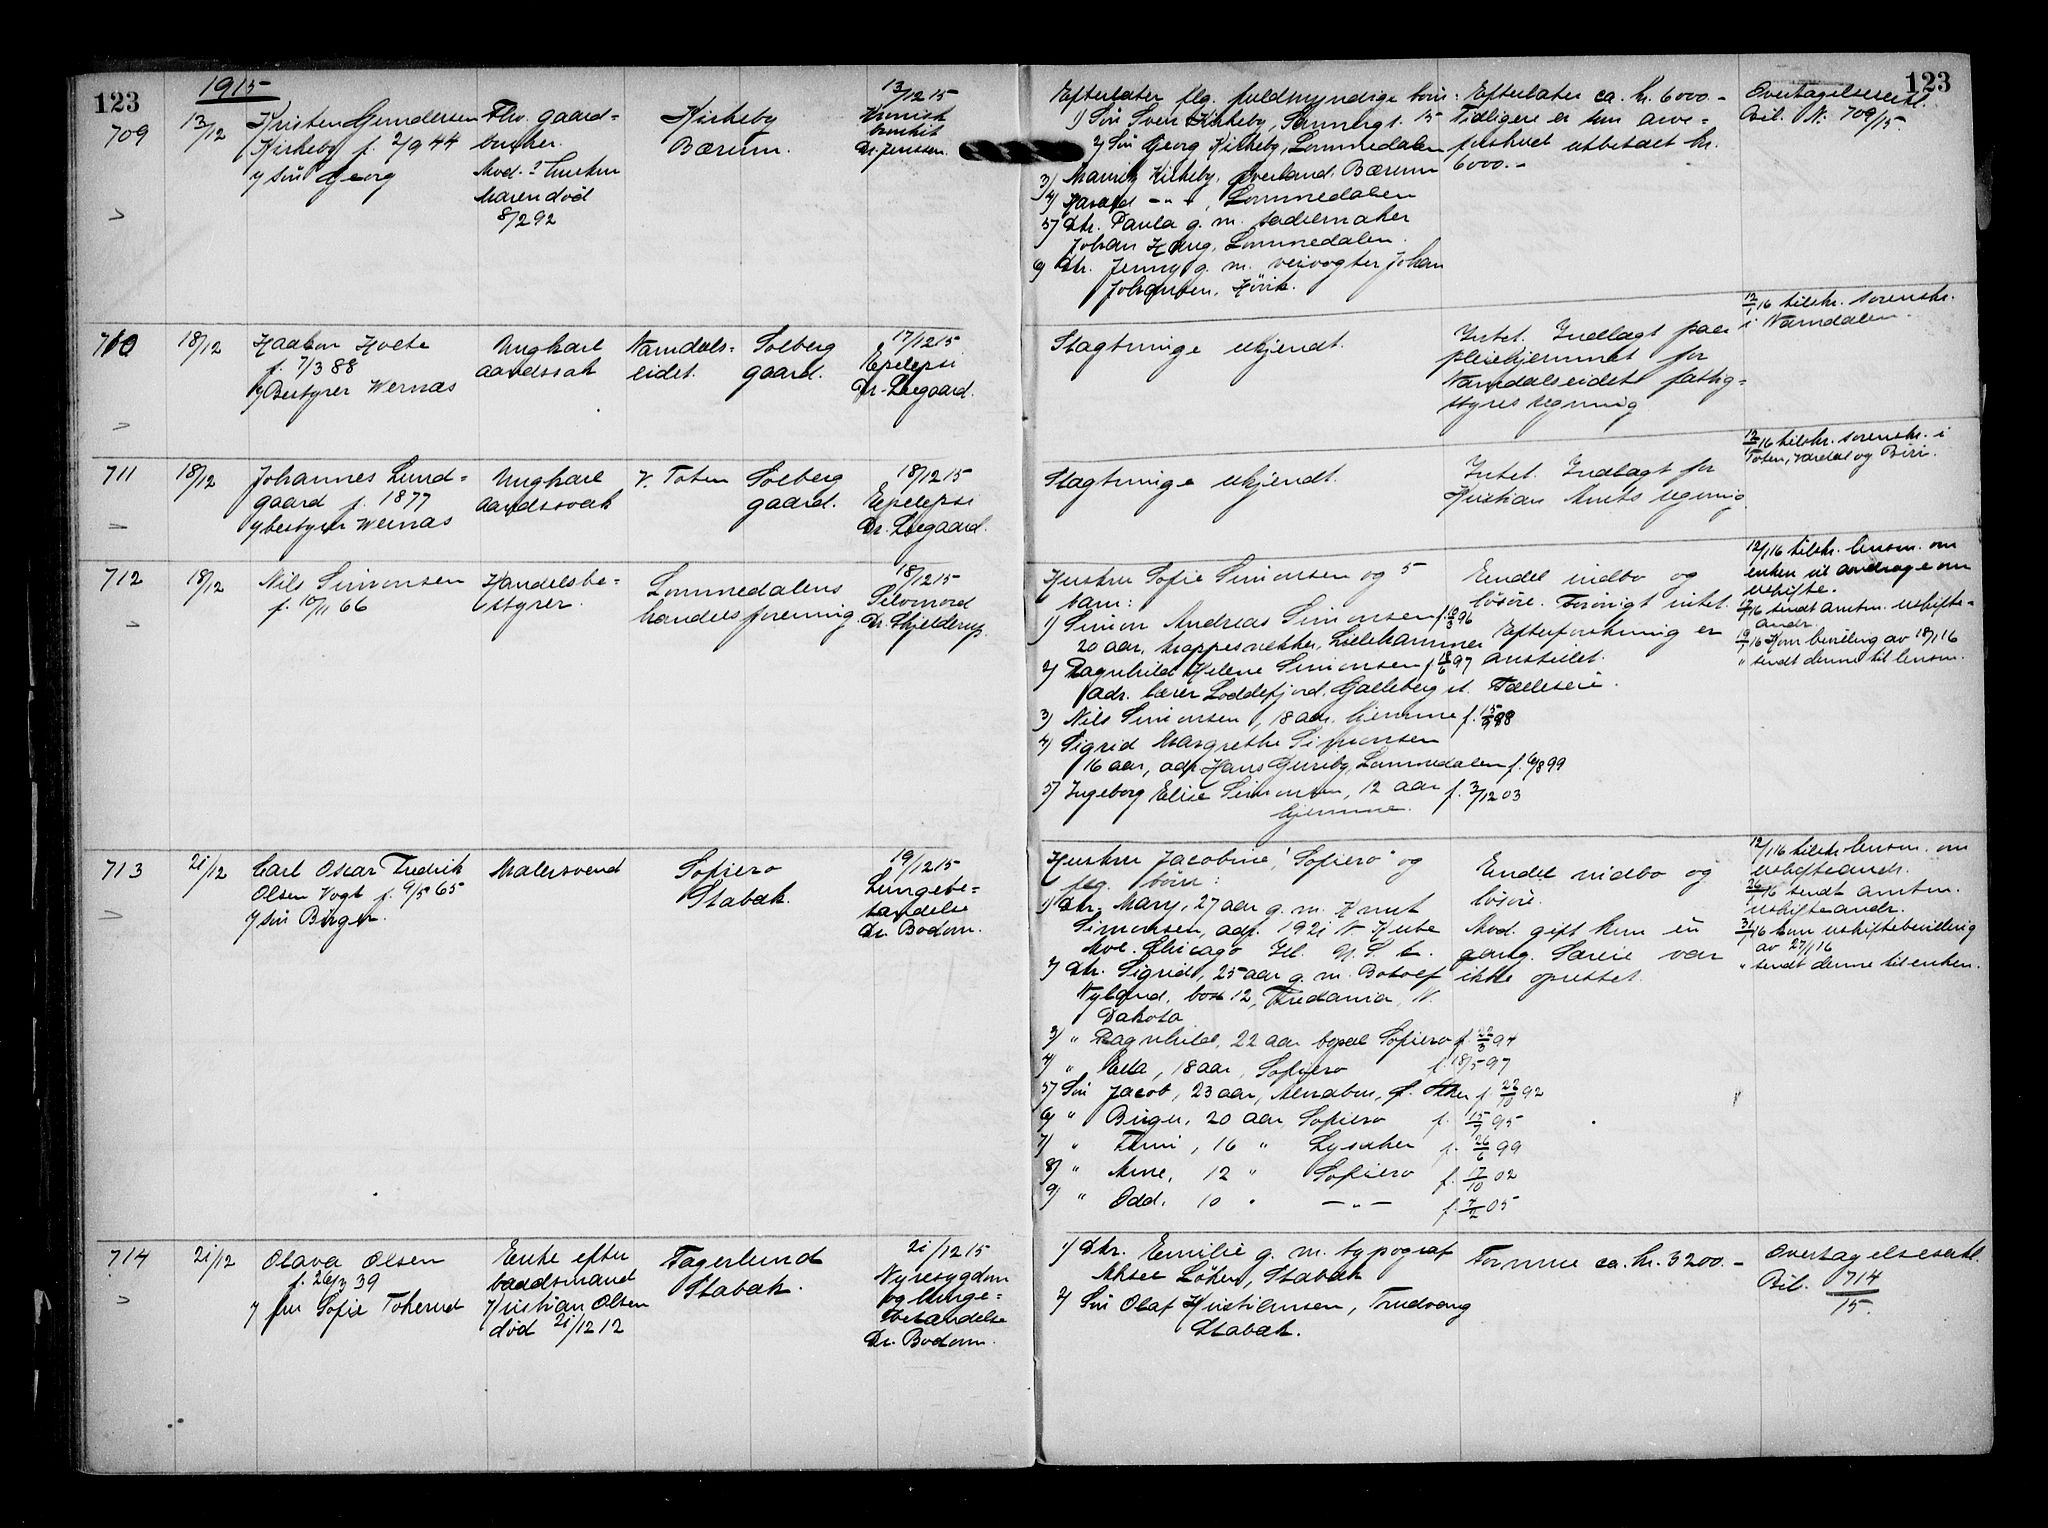 123
1915
123
709
13/12
Kristen Gundersen
Kirkeby f. 2/9 44
v/ sön Georg
Fhv. gaard-
bruker.
Avd. hustru
Maren död
8/2 92
Kirkeby
Bærum.
13/12 15
Kronisk
bronkit
Dr. Jenssen.
Efterlater flg. fuldmyndige børn:
1) Sön Sven Kirkeby,
2) Sön Georg Kirkeby, Lommedalen
3) Mauritz Kirkeby, Øverland, Bærum
4) Harald -"- , Lommedalen
5) Dtr. Paula g. m. sadelmaker
Johan Haug, Lommedalen.
6) Dtr. Jenny g. m. veivogter Johan
Johansen, Hövik.
Efterlater ca. kr. 6000.-
Tidligere er hun arve-
forskud utbetalt kr.
6000.-
Overtagelseserkl.
Bil. N: 709/15.
710
18/12
Haakon Holte
f. 7/3 88
v/ Bestyrer Wernæs
Ungkarl
aandssvak
Namdals-
eidet.
Solberg
gaard.
17/12 15
Epelepsi
Dr. Leegaard.
Slagtninge ukjendt.
Intet. Indlagt paa
pleiehjemmet for
Namdalseidets fattig-
styres regning
12/1 16 tilskr. sorenskr.
i Namdalen.
711
18/12
Johannes Lund-
gaard f. 1877
v/ bestyrer Wernæs
Ungkarl
aandssvak
V. Toten
Solberg
gaard.
18/12 15
Epelepsi
Dr. Leegaard.
Slagtninge ukjendt.
Intet. Indlagt for
Kristian Amts regning.
12/1 16 tilskr. sorenskr. i
Toten, Vardal og Biri.
712
18/12
Nils Simonsen
f. 10/11 66
Handelsbe-
styrer.
Lommedalens
handelsforening.
18/12 15
Selvmord
Dr. Skjelderup.
Hustru Sofie Simonsen og 5
barn:
1) Simon Andreas Simonsen f. 96
20 aar, Lillehammer
2) Ragnhild Helene Simonsen f. 97
adr. lærer Loddefjord, Galleberg st.
3) Nils Simonsen, 18 aar, hjemme f. 15/9 88
4) Sigrid Margrethe Simonsen
16 aar, adr. Hans Gureby, Lommedalen f. 6/8 99
5) Ingeborg Elise Simonsen, 12 aar f. 3/12 03
hjemme.
Endel indbo og
lösöre. Forövrigt intet.
Efterforskning er
anstillet.
Fælleseie.
12/1 16 tilskr. lensm. om
enken vil andrage om
uskifte.
17/1 16 sendt amtm. uskifte-
andr.
19/1 16 Kom bevilling av 18/1 16
" sendt denne til lensm.
713
21/12
Carl Oscar Fredrik
Olsen Vogt f. 9/5 65
v/ sön Birger
Malersvend
Sofiero
Stabæk.
19/12 15
Lungebe-
tændelse
Dr. Bodom.
Hustru Jacobine, "Sofiero" og
flg. börn:
1) Dtr. Mary, 27 aar g. m. Knut
Simonsen, adr. 1921 N
Ave. Chicago Ill. U. S. A.
2) Dtr. Sigrid, 25 aar g. m. Botolf
Nylund, box 12, Fredonia, N.
Dakota
3) " Ragnhild, 22 aar bopæl Sofiero f. 22/3 94
4) " Esta, 18 aar, Sofiero f. 18/5 97
5) Sön Jacob, 23 aar, Alnabru, f. 22/10 92
6) " Birger, 20 aar Sofiero f. 15/7 95
7) " Finn, 16 " Lysaker f. 26/6 99
8) " Arne, 12 " Sofiero f. 17/10 02
9) " Odd, 10 " -"- f. 7/2 05
Endel indbo og
lösöre.
Avd. gift kun én
gang. Særeie var
ikke oprettet.
12/1 16 tilskr. lensm. om
uskifteandr.
26/1 16 sendt amtm.
uskifteandr.
31/1 16 kom uskiftebevilling
av 27/1 16
" sendt denne til enken.
714
21/12
Olava Olsen
f. 26/3 39
v/ fru Sofie Tokerud
Enke efter
baadsmand
Kristian Olsen
död 21/12 12
Fagerlund
Stabæk.
21/12 15
Nyresygdom
og lunge-
betændelse
Dr. Bodom.
1) Dtr. Emilie g. m. typograf
Aksel Löken, Stabæk
2) Sön Olaf Kristiansen, Trudvang
Stabæk.
Formue ca. kr. 3200.-
Overtagelseserkl.
Bil. 714/15.